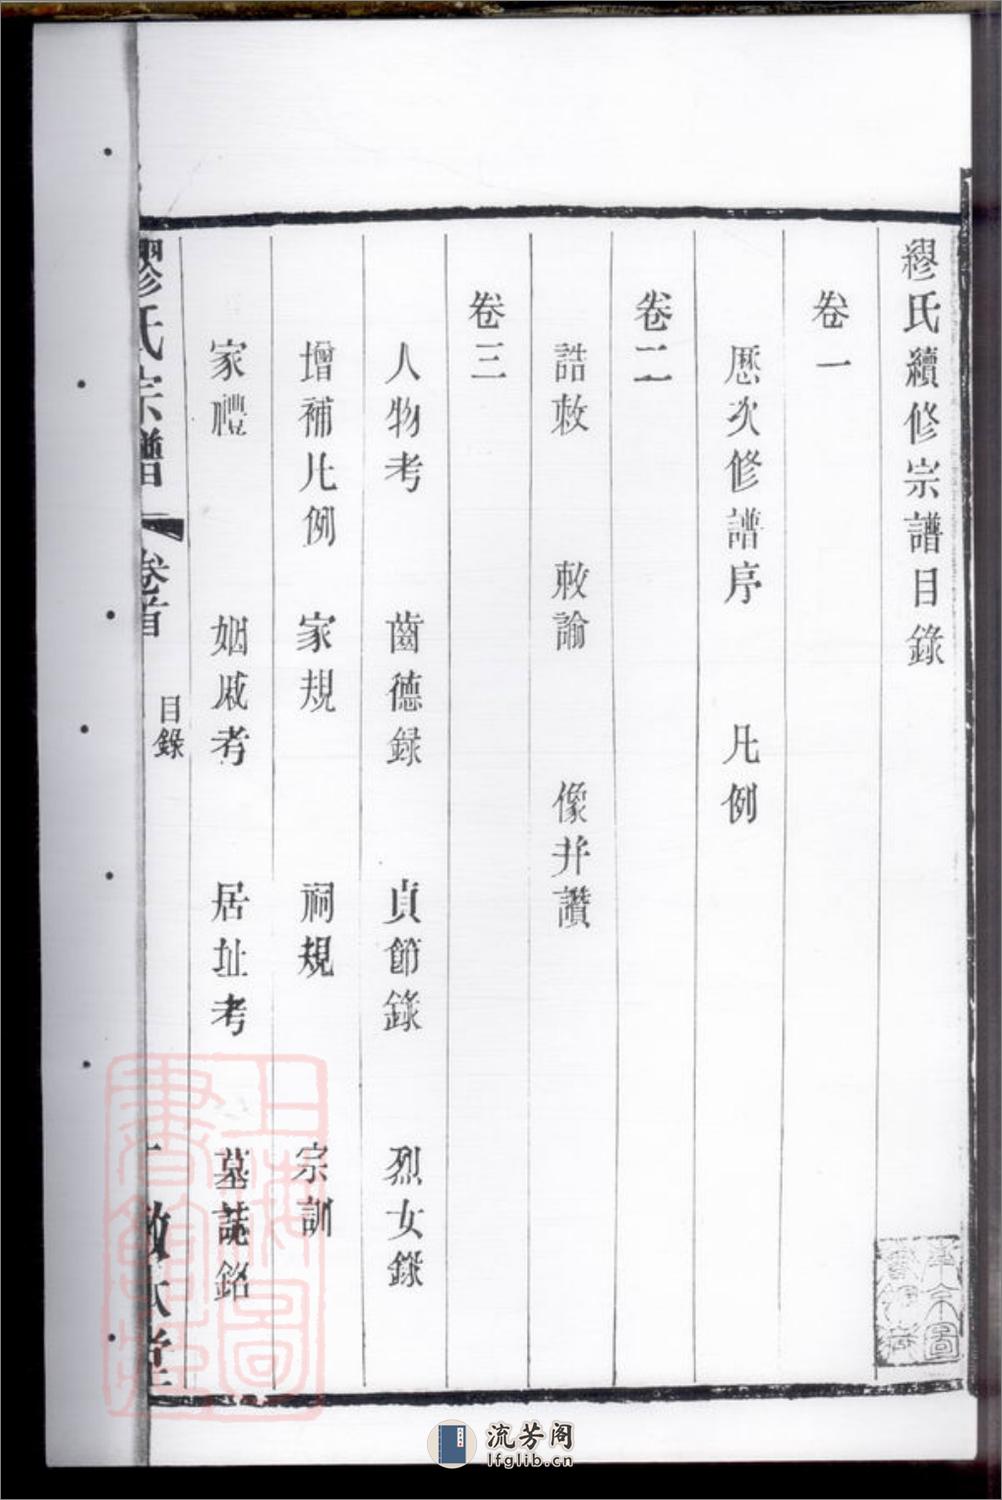 繆氏續修宗譜目錄
卷一
歷次修譜序 凡例
卷二
誥敕 敕諭 像并讚
卷三
人物考 齒德錄 貞節錄 烈女錄
增補凡例 家規 祠規 宗訓
家禮 姻戚考 居址考 墓誌銘
繆氏宗譜 卷首 目錄
上海圖書館藏
流芳阁
lfglib.cn